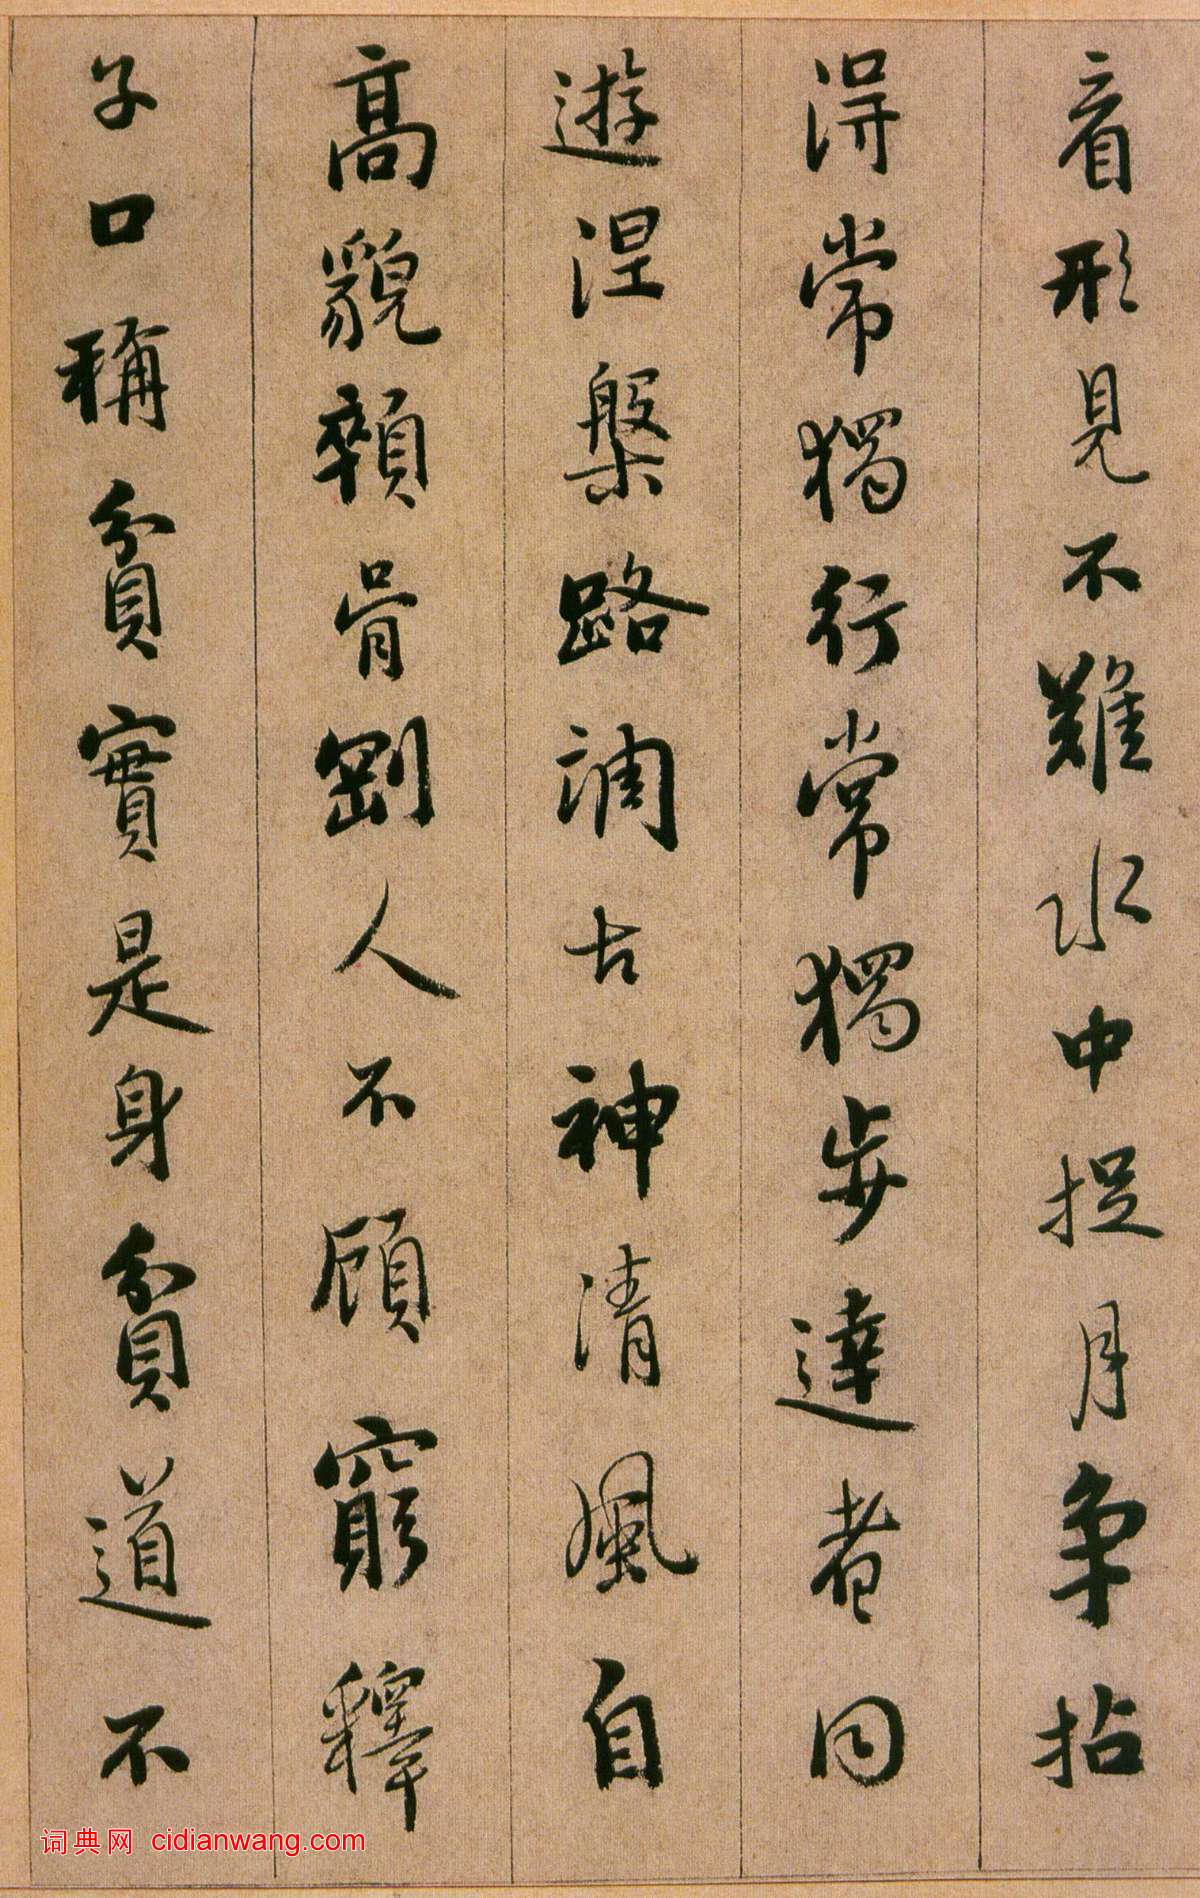 看形見不難水中捉月爭拈
得常獨行常獨步達者同
遊涅槃路調古神清風自
高貌顇骨剛人不顧窮釋
子口稱貧實是身貧道不
词典网 cidianwang.com